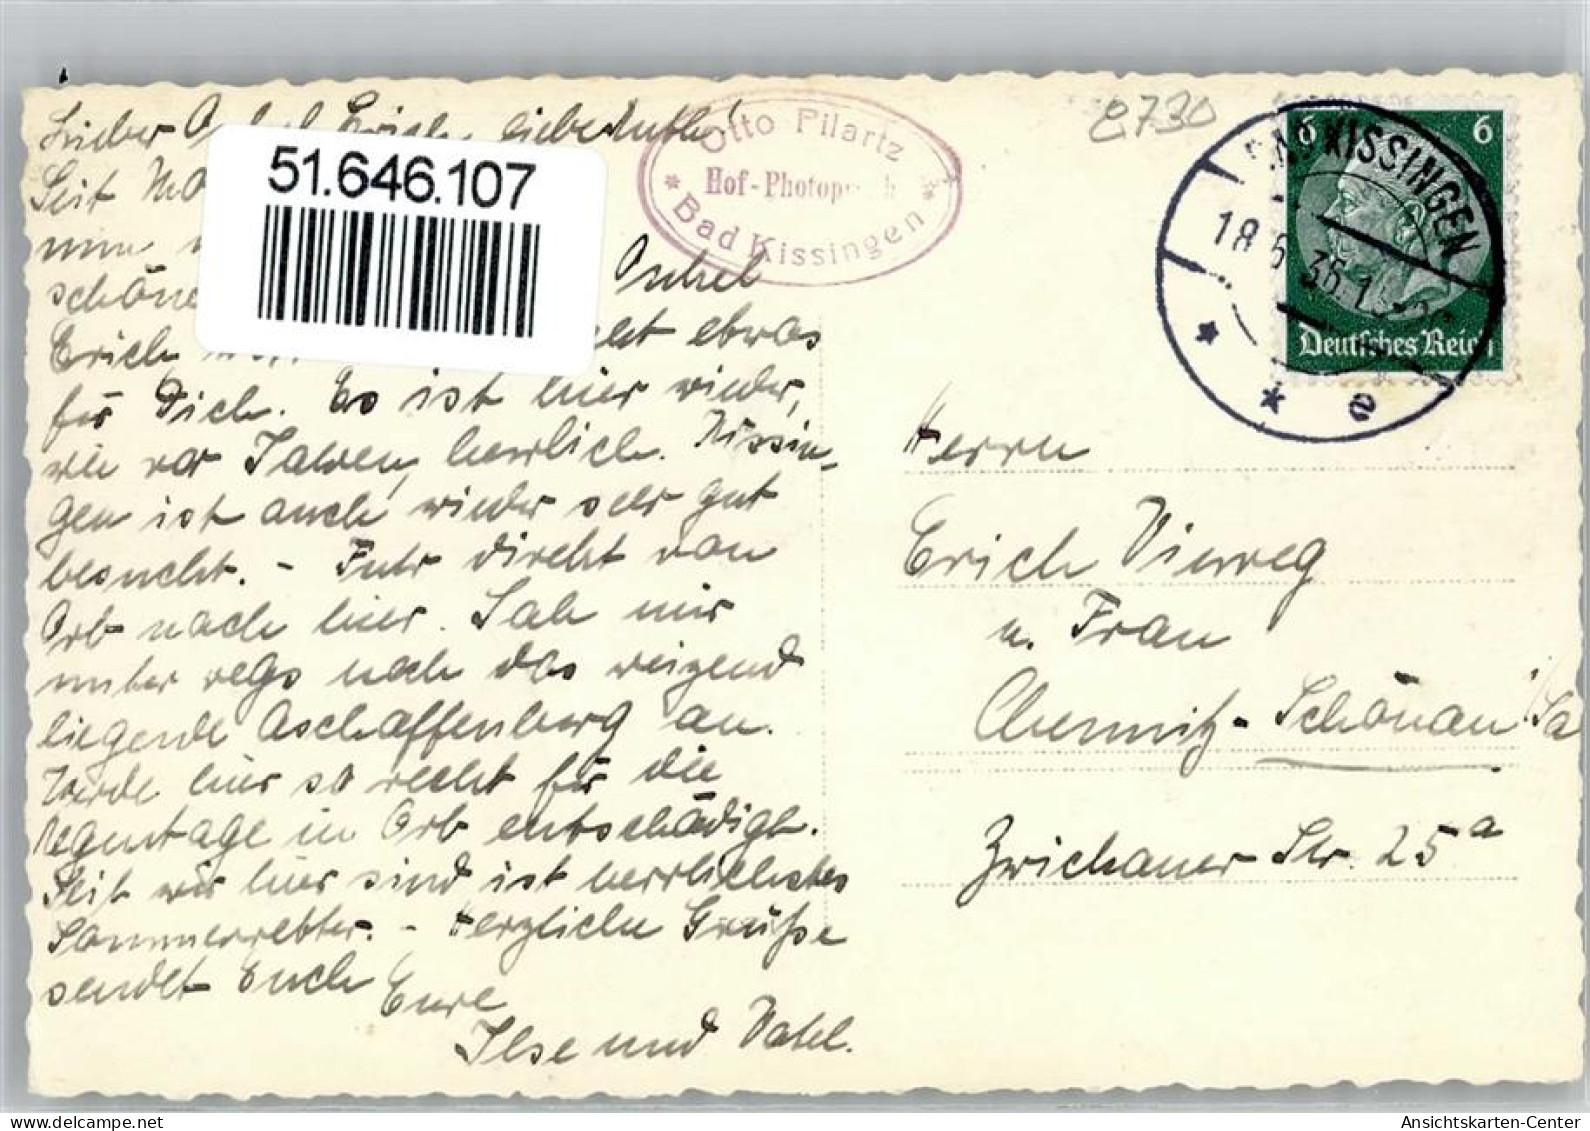 Lieber Onkel Erich, liebe Ruth!
Seit Mo
nun
schöne Onkel
Erich etwas
für Dich. Es ist hier wieder,
wie vor Jahren, herrlich. Kissin-
gen ist auch wieder sehr gut
besucht. - Fuhr direkt von
Orb nach hier. Sah mir
unterwegs noch das reizend
liegende Aschaffenburg an.
Werde hier so recht für die
Regentage in Orb entschädigt.
Seit wir hier sind ist herrlichstes
Sommerwetter. - Herzliche Grüße
sendet Euch Eure
Ilse und Vatel.
51.646.107
Otto Pilartz
Hof-Photogr
* Bad Kissingen *
2730
BAD KISSINGEN
18.6.36.1
* * e
6 6
Deutsches Reich
Herrn
Erich Vieweg
u. Frau
Chemnitz-Schönau i/Sa
Zwickauer Str. 25a
Ansichtskarten-Center